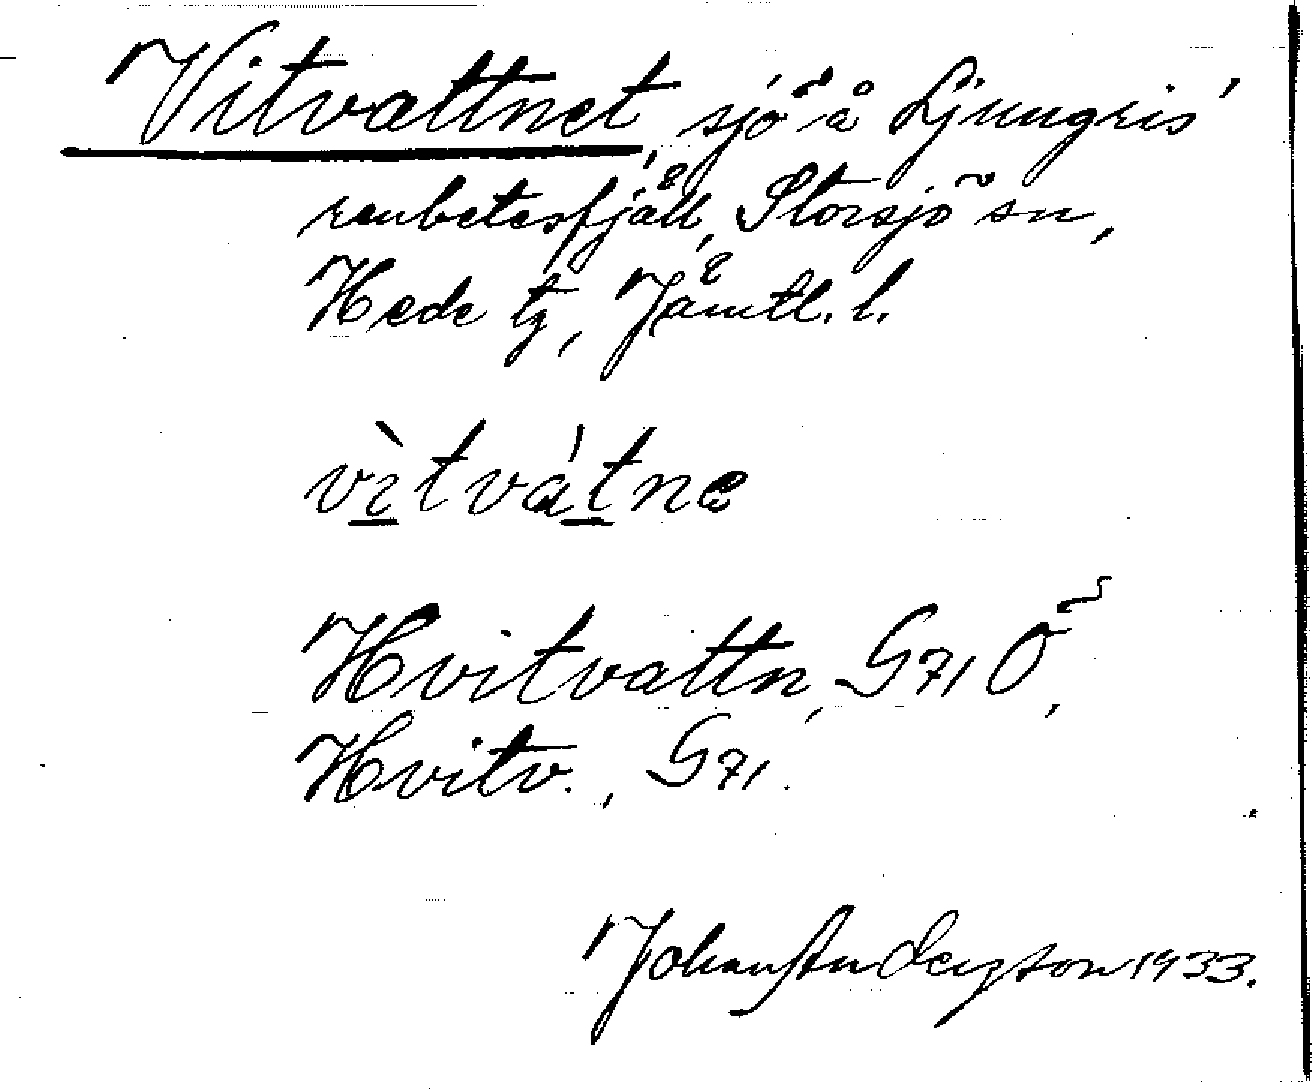 Vitvattnet, sjö å Ljungris
renbetesfjäll, Storsjö sn,
Hede tg, Jämtl. l.
vìtvátne
Hvitvattn, G71 Ö,
Hvitv., G71.
Johan Andersson 1933.